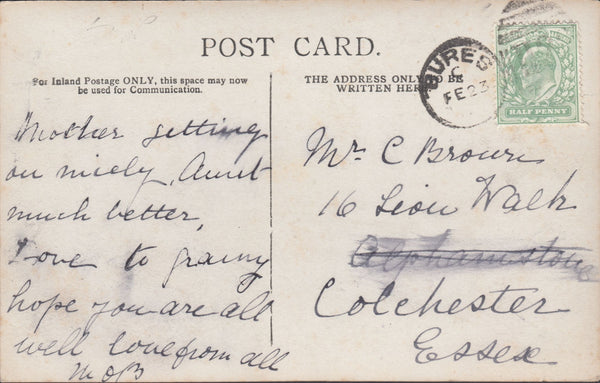 POST CARD.
For Inland Postage ONLY, this space may now
be used for Communication.
THE ADDRESS ONLY TO BE
WRITTEN HERE
BURES
C
FE 23
HALF PENNY
Mother getting
on nicely, Aunt
much better,
Love to granny
hope you are all
well love from all
M B
Mr C Brown
16 Lion Walk
Alphamstone
Colchester
Essex